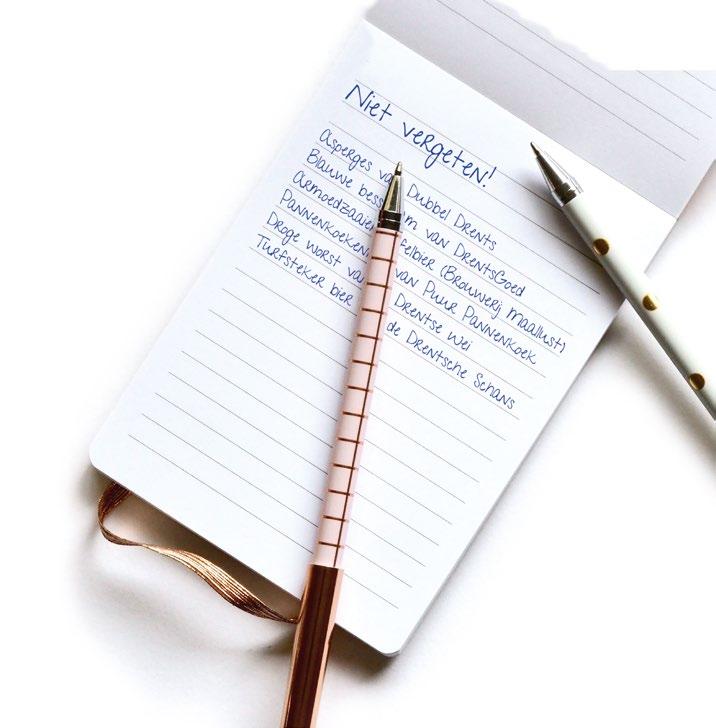 Niet vergeten!
Asperges van Dubbel Drents
Blauwe bess m van DrentsGoed
Armoedzaaier felbier (Brouwerij Maallust)
Pannenkoeken van Puur Pannenkoek
Droge worst van Drentse Wei
Turfsteker bier de Drentsche Schans